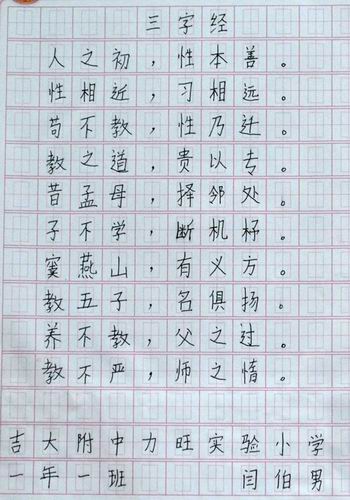 三字经
人之初，性本善。
性相近，习相远。
苟不教，性乃迁。
教之道，贵以专。
昔孟母，择邻处。
子不学，断机杼。
窦燕山，有义方。
教五子，名俱扬。
养不教，父之过。
教不严，师之惰。
吉大附中力旺实验小学
一年一班 闫伯男